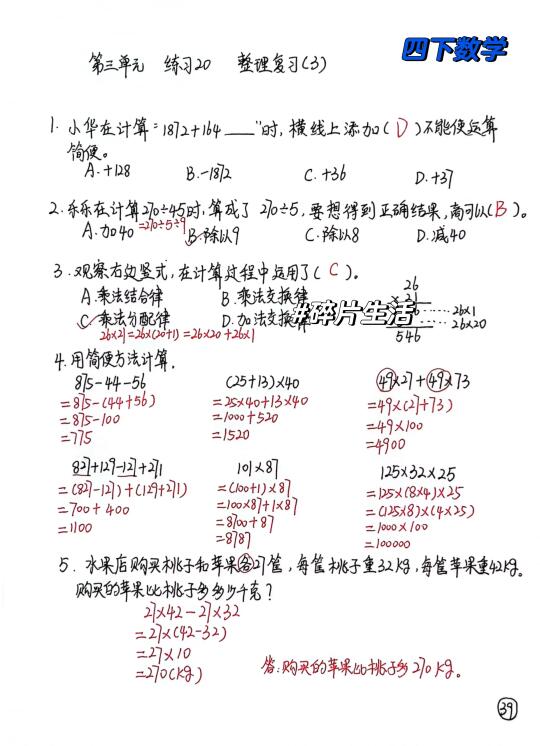 四下数学
第三单元 练习20 整理复习(3)
1. 小华在计算"1872+164____"时,横线上添加( D )不能使运算
简便。
A.+128 B.-1872 C.+36 D.+37
2. 乐乐在计算270÷45时,算成了270÷5,要想得到正确结果,商可以(B)。
=270÷5÷9
A.加40 B.除以9 C.除以8 D.减40
3. 观察右边竖式,在计算过程中运用了( C )。
A.乘法结合律 B.乘法交换律
C.乘法分配律 D.加法交换律
26×21=26×(20+1)=26×20+26×1
26
×21
26×1
26×20
546
#碎片生活
4. 用简便方法计算。
875-44-56 (25+13)×40 49×27+49×73
=875-(44+56) =25×40+13×40 =49×(27+73)
=875-100 =1000+520 =49×100
=775 =1520 =4900
827+129-127+271 101×87 125×32×25
=(827-127)+(129+271) =(100+1)×87 =125×(8×4)×25
=700+400 =100×87+1×87 =(125×8)×(4×25)
=1100 =8700+87 =1000×100
=8787 =100000
5. 水果店购买桃子和苹果各27筐,每筐桃子重32kg,每筐苹果重42kg。
购买的苹果比桃子多多少千克?
27×42-27×32
=27×(42-32)
=27×10
=270(kg)
答:购买的苹果比桃子多270kg。
39